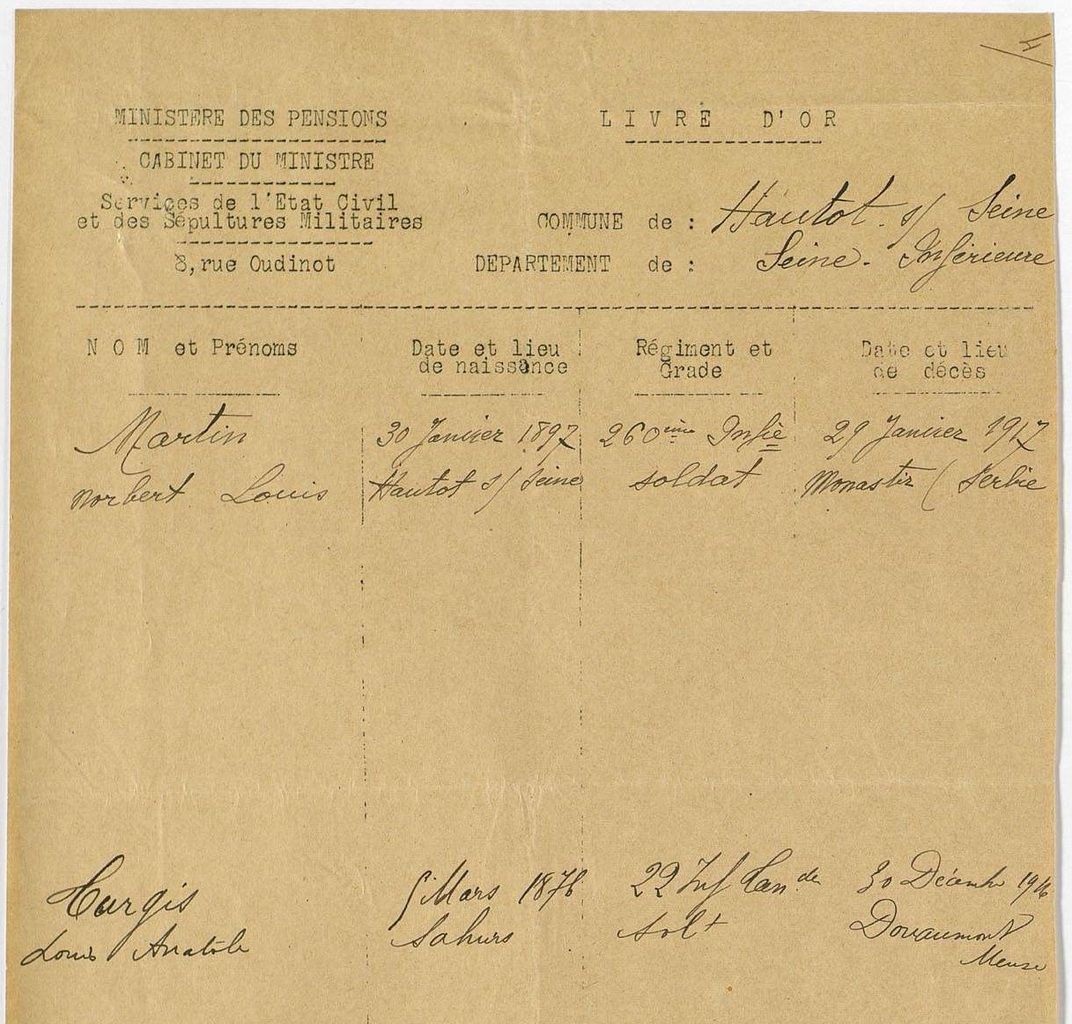 MINISTERE DES PENSIONS
CABINET DU MINISTRE
Services de l'Etat Civil
et des Sépultures Militaires
8, rue Oudinot
LIVRE D'OR
COMMUNE de : Hautot s/ Seine
DEPARTEMENT de : Seine-Inférieure
NOM et Prénoms
Date et lieu
de naissance
Régiment et
Grade
Date et lieu
de décès
Martin
Norbert Louis
30 Janvier 1897
Hautot s/ Seine
260ème Infie
soldat
29 Janvier 1917
Monastir (Serbie
Louis Anatole
5 Mars 1876
Sahurs
22 Inf
Solt
30 Décembre 1916
Douaumont
Meuse